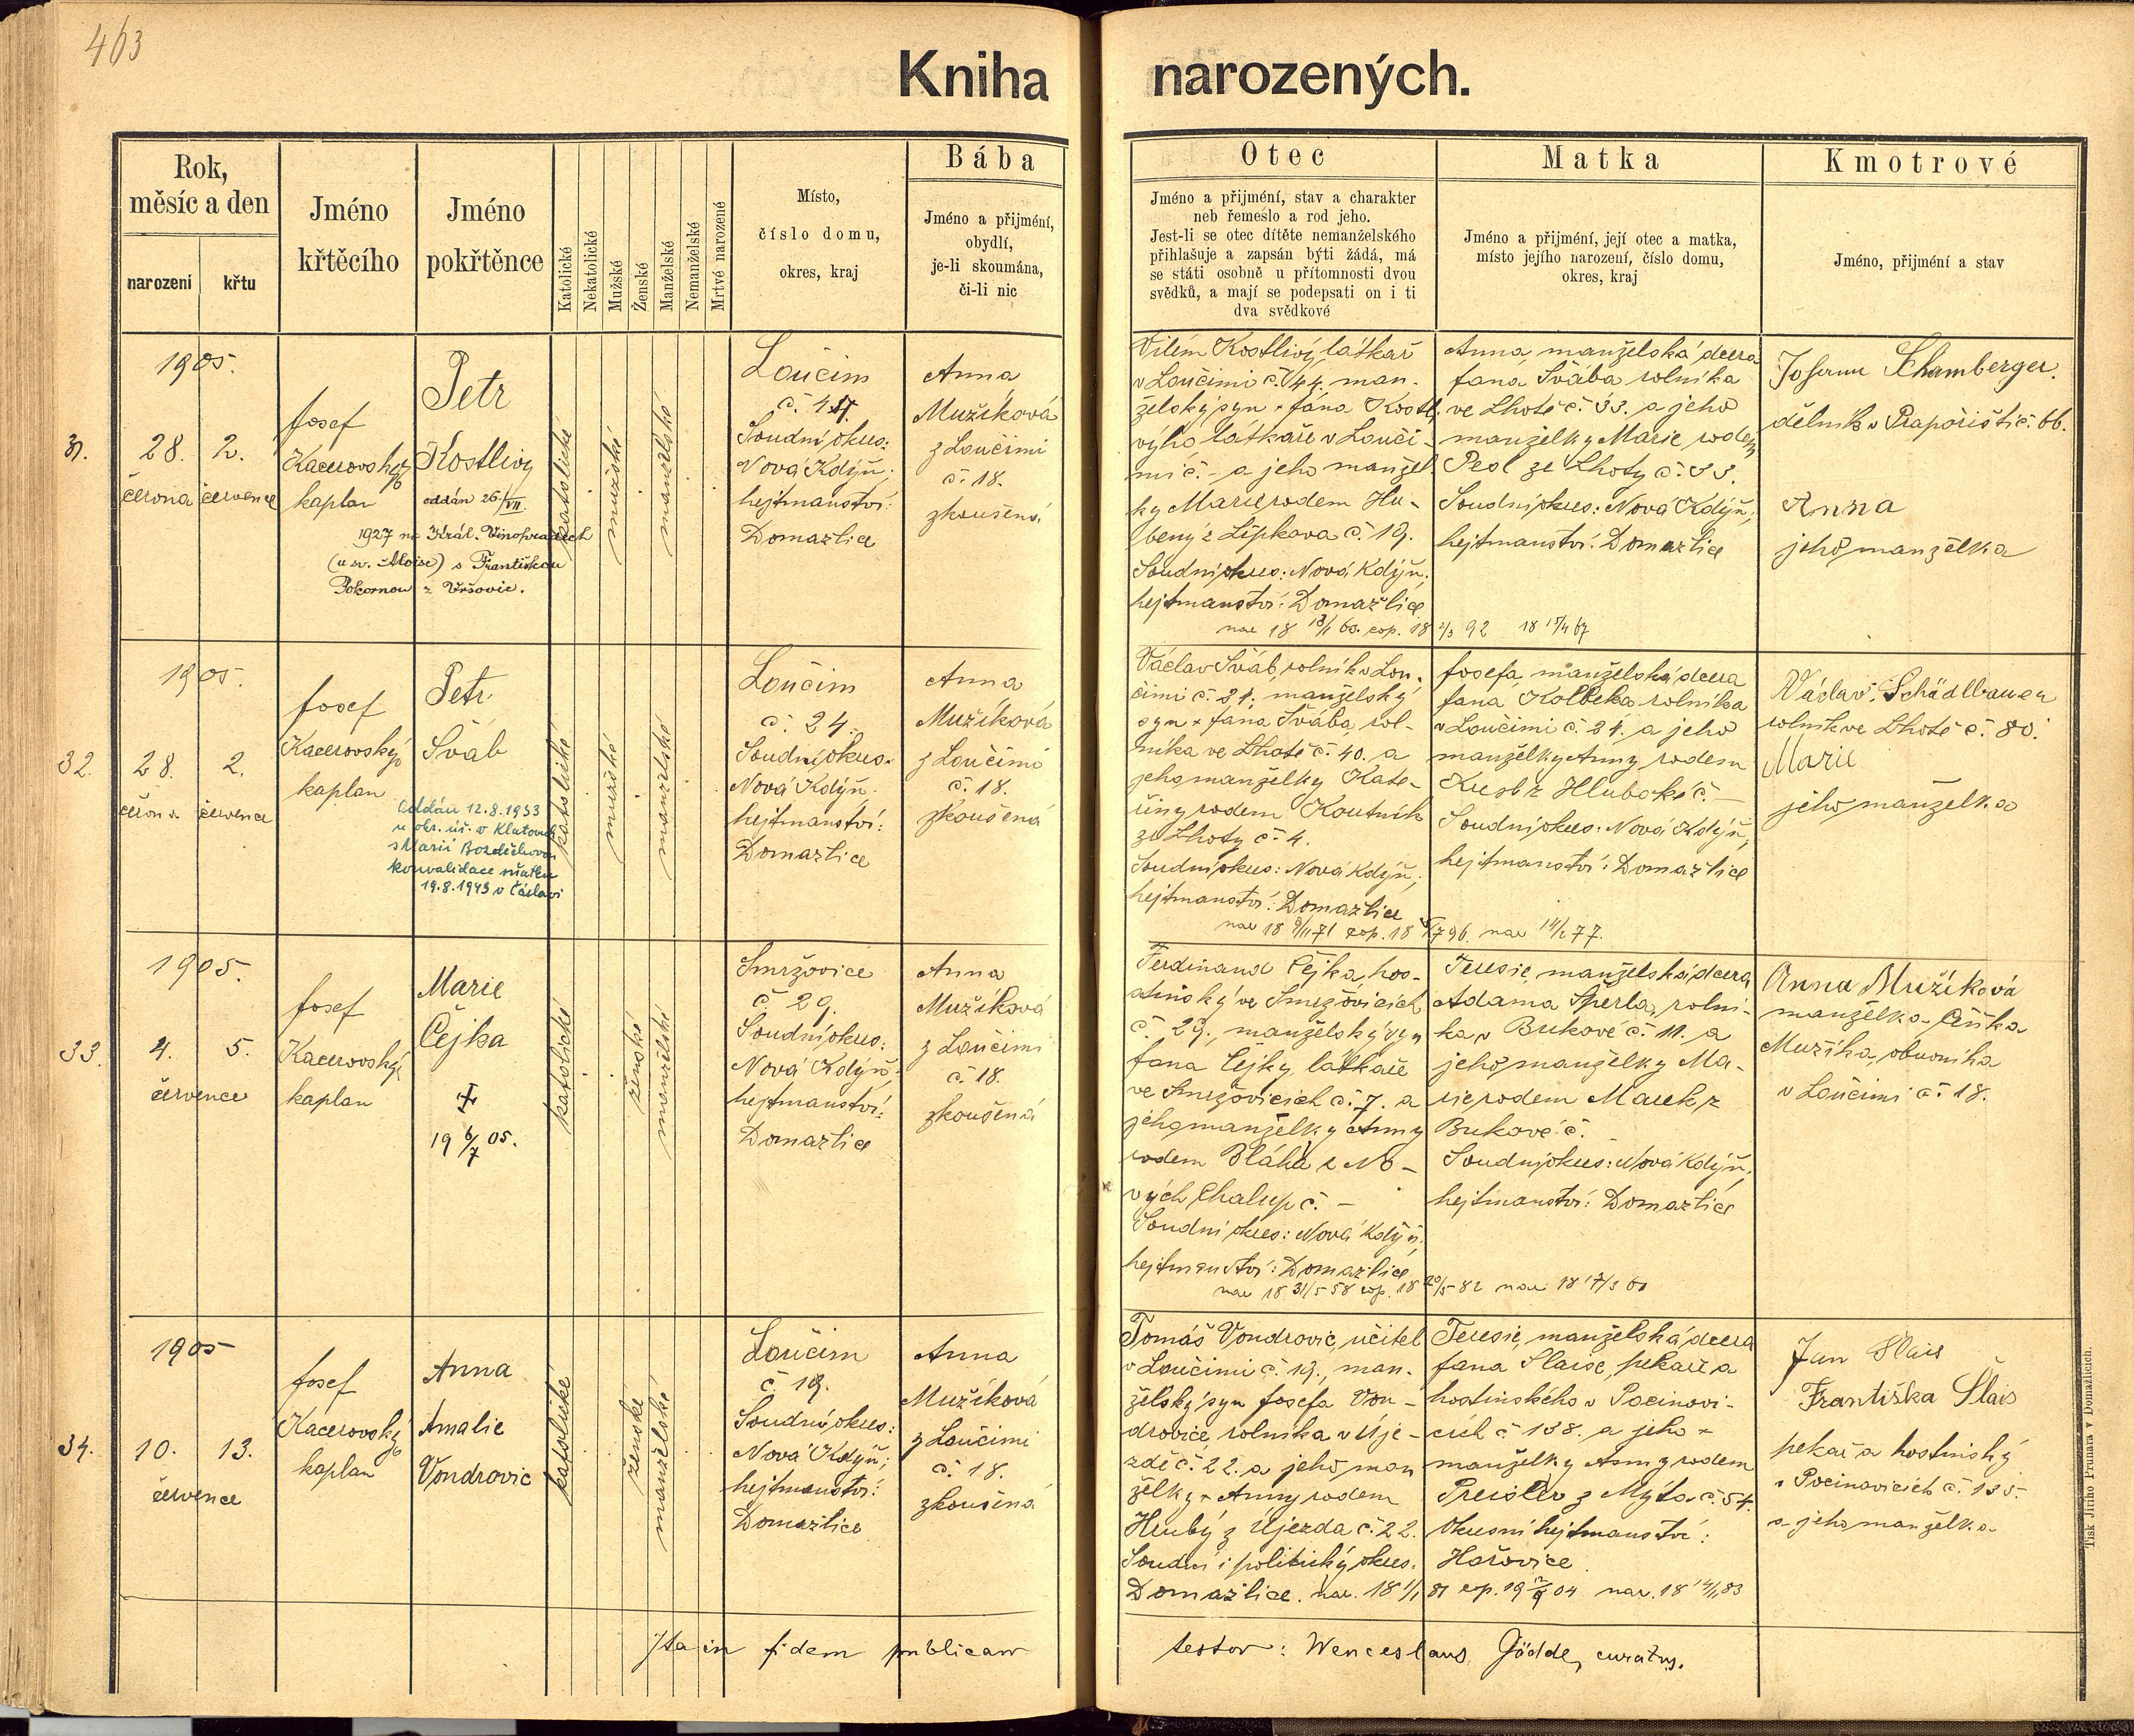 463
Kniha narozených.
Rok,
měsíc a den
narození
křtu
Jméno
křtěcího
Jméno
pokřtěnce
Katolické
Nekatolické
Mužské
Ženské
Manželské
Nemanželské
Mrtvé narozené
Místo,
číslo domu,
okres, kraj
Bába
Jméno a přijmení,
obydlí,
je-li skoumána,
či-li nic
Otec
Jméno a přijmení, stav a charakter
neb řemeslo a rod jeho.
Jest-li se otec dítěte nemanželského
přihlašuje a zapsán býti žádá, má
se státi osobně u přítomnosti dvou
svědků, a mají se podepsati on i ti
dva svědkové
Matka
Jméno a přijmení, její otec a matka,
místo jejího narození, číslo domu,
okres, kraj
Kmotrové
Jméno, přijmení a stav
31.
1905.
28. 2.
června července
Josef
Kacerovský
kaplan
Petr
Kostlivý
oddán 26/VII.
1927 na Král. Vinohradech
(u sv. Aloise) s Františkou
Pokornou z Vršovic.
katolické
mužské
manželské
Loučim
Soudní okres:
Nová Kdýň;
hejtmanství:
Domažlice
Anna
Mužíková
z Loučimi
č. 18.
zkoušená
Vilém Kostlivý, látkař
v Loučimi č. 44. man-
želský syn Jána Kostl-
ivýho látkaře v Louči-
mi č. - a jeho manžel
ky Marie rodem Hu-
bený z Lipkova č. 19.
Soudní okres: Nová Kdýň;
hejtmanství: Domažlice
Anna manželská dcera
Jana Švába rolníka
ve Lhotě č. 33. a jeho
manželky Marie rodem
ze Lhoty č. 33.
Soudní okres: Nová Kdýň;
hejtmanství: Domažlice
Schamberger.
dělník v Prapořišti č. 66.
Anna
jeho manželka
32.
1905.
28. 2.
června července
Josef
Kacerovský
kaplan
Petr
Šváb
Oddán 12.8.1933
u okr. úř. v Klatovech
s Marií Bozděchovou
konvalidace sňatku
19.8.1943 v Čáslavi
katolické
mužské
manželské
Loučim
č. 24.
Soudní okres:
Nová Kdýň.
hejtmanství:
Domažlice
Anna
Mužíková
z Loučimi
č. 18.
zkoušená
Václav Šváb, rolník v Lou-
čimi č. 24; manželský
syn Jana Švába, rol-
níka ve Lhotě č. 40. a
jeho manželky Kate-
řiny rodem Koutník
ze Lhoty č. 4.
Soudní okres: Nová Kdýň;
hejtmanství: Domažlice
Josefa manželská dcera
Jana Kolbeka rolníka
v Loučimi č. 24. a jeho
manželky Anny rodem
z Hluboké č. —
Soudní okres: Nová Kdýň,
hejtmanství: Domažlice
Václav Schädlbauer
rolník ve Lhotě č. 80.
Marie
jeho manželka
33.
1905.
4. 5.
července
Josef
Kacerovský
kaplan
Marie
Čejka
19 6/7 05.
katolické
ženské
manželské
Smržovice
č 29.
Soudní okres:
Nová Kdýň;
hejtmanství:
Domažlice
Anna
Mužíková
z Loučimi
č. 18.
zkoušená
Ferdinand Čejka, hos-
tinský ve Smržovicích
č. 29., manželský syn
Jana Čejky, látkaře
ve Smržovicích č. 7. a
jeho manželky Anny
rodem Bláha z No-
vých Chalup č. -
Soudní okres: Nová Kdýň.
hejtmanství: Domažlice
nar 18 31/5 58 cop. 18 20/5 82
Teresie, manželská dcera
Adama Šperla, rolní-
ka v Bukové č. 11. a
jeho manželky Ma-
rie rodem Marek z
Bukové č.
Soudní okres: Nová Kdýň;
hejtmanství: Domažlice
Anna Mužíková
manželka
Mužíka, obuvníka
v Loučimi č. 18.
34.
1905
10. 13.
července
Josef
Kacerovský
kaplan
Anna
Amalie
Vondrovic
katolické
ženské
manželské
Loučim
č. 19.
Soudní okres:
Nová Kdýň;
hejtmanství:
Domažlice
Anna
Mužíková
z Loučimi
č. 18.
zkoušená
Tomáš Vondrovic, učitel
v Loučimi č. 19., man-
želský syn Josefa Von-
drovice, rolníka v Úje-
zdě č. 22. a jeho man
želky Anny rodem
Hrubý z Újezda č. 22.
Soudní i politický okres.
Domažlice. nar. 18 1/1 81 cop. 19
Teresie, manželská dcera
Jana Slaise, pekaře a
hostinského v Pocinovi-
cích č. 138. a jeho
manželky Anny rodem
z Mýta č. 54.
Okresní hejtmanství:
Hořovice
Jan Slais
Františka Šlais
pekař a hostinský
v Pocinovicích č. 135.
a jeho manželka
Ita in fidem publicam
testor: Wenceslaus Gödde, curatus.
Tisk Jiřího Prunara v Domažlicích.